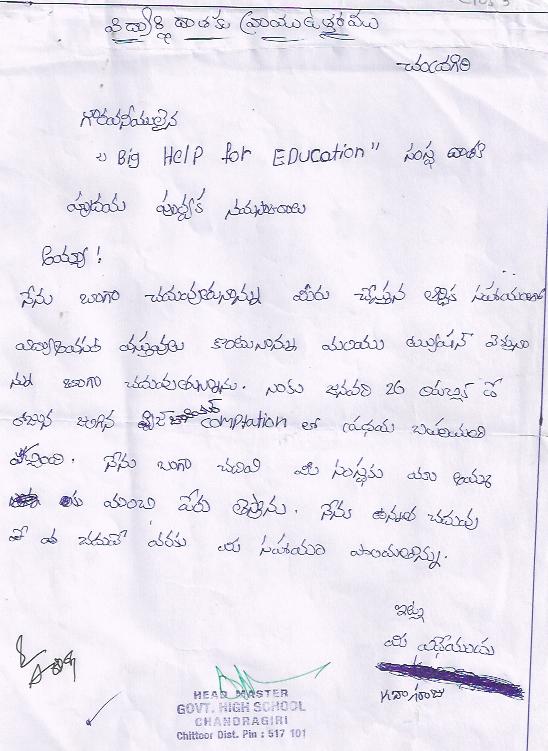 విద్యార్థి దాతకు వ్రాయు ఉత్తరము
చంద్రగిరి
గౌరవనీయులైన
" Big HELP for EDucation" సంస్థ దాతకి
హృదయ పూర్వక నమస్కారాలు
అయ్యా !
నేను బాగా చదువుతున్నాను మీరు చేస్తున్న ఆర్థిక సహాయంతో
వస్తువులు కొంటున్నాను మరియు ట్యూషన్ వెళ్తున్నా
ను బాగా చదువుతున్నాను. నాకు జనవరి 26
జరిగిన comptation లో ప్రథమ బహుమతి
వచ్చింది. నేను బాగా చదివి మీ సంస్థకు మా అమ్మ
కు మంచి పేరు తెస్తాను. నేను ఉన్నత చదువు
వరకు మీ సహాయం
ఇట్లు
మీ విధేయుడు
HEAD MASTER
GOVT. HIGH SCHOOL
CHANDRAGIRI
Chittoor Dist. Pin : 517 101